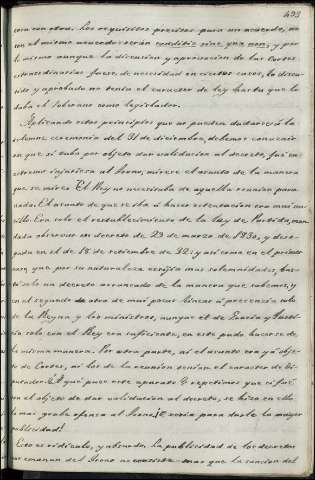 493
cosa con otra. Los requisitos precisos para un acuerdo, no
son el mismo acuerdo: serán conditio sine qua non; y por
lo mismo aunque la discusion y aprobacion de las Cortes
extraordinarias fuese de necesidad en ciertos casos, lo discu-
tido y aprobado no tenia el caracter de ley hasta que lo
daba el Soberano como legislador.
Aplicando estos principios que no pueden dudarse á la
solemne ceremonia del 31 de diciembre, debemos convenir
en que si tuvo por objeto dar validacion al decreto, fué en
estremo injuriosa al trono, mirese el asunto de la manera
que se mire. El Rey no necesitaba de aquella reunion para
nada. El asunto de que se iba á hacer ostentacion era muy sen-
cillo. Era solo el restablecimiento de la ley de Partida, man-
dada observar en decreto de 29 de marzo de 1830, y dero-
gada en el de 18 de setiembre de 32: y asi como en el primer
caso, que por su naturaleza exigia mas solemnidades, bas-
tó solo un decreto arrancado de la manera que sabemos, y
en el segundo otro de muy pocas lineas á presencia solo
de la Reyna y los ministros, aunque el de Gracia y Justi-
cia solo con el Rey era suficiente, en este pudo hacerse de
la misma manera. Por otra parte, ni el asunto era ya obje-
to de Cortes, ni los de la reunion tenian el caracter de Di-
putados. ¿A qué pues este aparato? repetimos que si fué
con el objeto de dar validacion al decreto, se hizo en ello
la mas grave ofensa al Trono. ¡O seria para darle la mayor
publicidad!
Esto es ridiculo, y absurdo. La publicidad de los decretos
que emanan del Trono no consiste mas que la sancion del